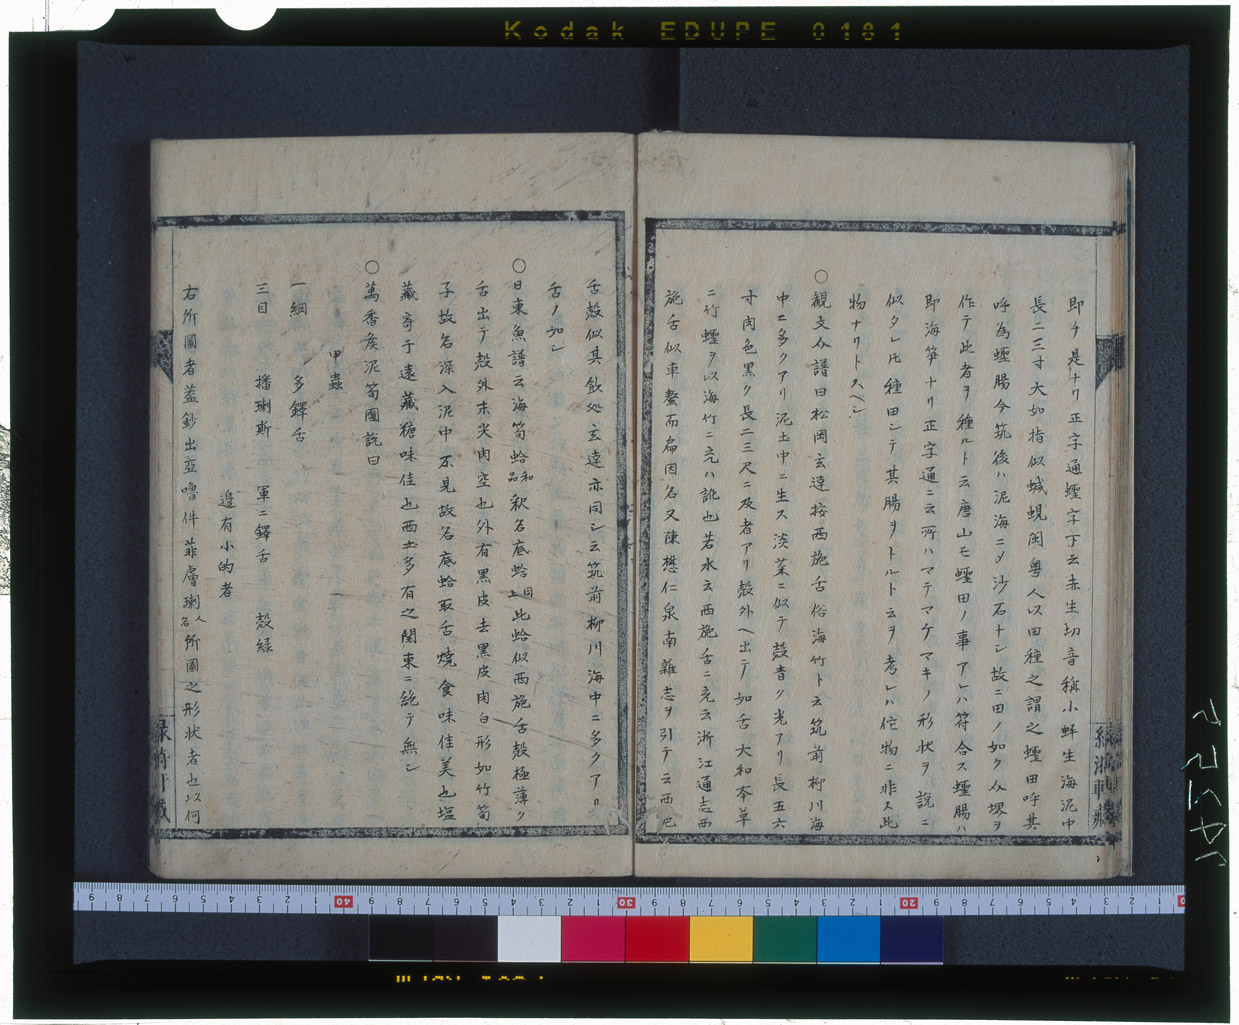 Kodak EDUPE 0181
即チ是ナリ正字通蟶字下云赤生切音稱小蚌生海泥中
長二三寸大如指似蝛蜆閩粤人以田種之謂之蟶田呼其
呼為蟶腸今筑後ハ泥海ニメ沙石ナシ故ニ田ノ如ク
作テ此者ヲ種ルト云唐山モ蟶田ノ事アレハ符合ス蟶腸ハ
即海笋ナリ正字通ニ云所ハマテマケマキノ形状ヲ説ニ
似タレ圧種田シテ其腸ヲトルト云ヲ考レハ佗物ニ非ス此
物ナリトスヘシ
○観文介譜曰松岡玄達按西施舌俗海竹ト云筑前柳川海
中ニ多クアリ泥土中ニ生ス淡菜ニ似テ殻青ク光アリ長五六
寸肉色黒ク長二三尺ニ及者アリ殻外ヘ出テ如舌大和本草
ニ竹蟶ヲ以海竹ニ充ハ訛也若水云西施舌ニ充云浙江通志西
施舌似車螯而扁因名又陳懋仁泉南雑志ヲ引テ云西
舌殻似其飲処玄達亦同シ云筑前柳川海中ニ多クアリ
舌ノ如シ
○日東魚譜云海筍蛤和品釈名底蛤同上此蛤似西施舌殻極薄ク
舌出テ殻外末尖肉空也外有黒皮去黒皮肉白形如竹筍
子故名深入泥中不見故名底蛤取舌焼食味佳美也塩
藏寄于遠藏糖味佳也西土多有之関東ニ絶テ無シ
○萬香矦泥筍圖説曰
甲蟲
一綱 多鐸舌
三目 播琍斯 軍ニ鐸舌 殻緑
邉有小的者
右所圖者蓋鈔出亞嚕件菲膚琍人名所圖之形状者也以何